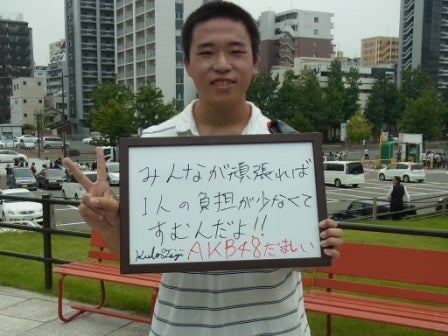 みんなが頑張れば
1人の負担が少なくて
すむんだよ!!
AKB48だましい